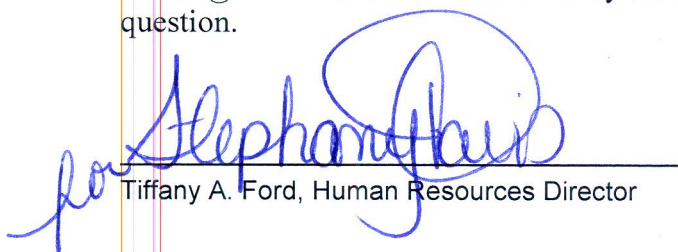 question.
for Stephany Davis
Tiffany A. Ford, Human Resources Director